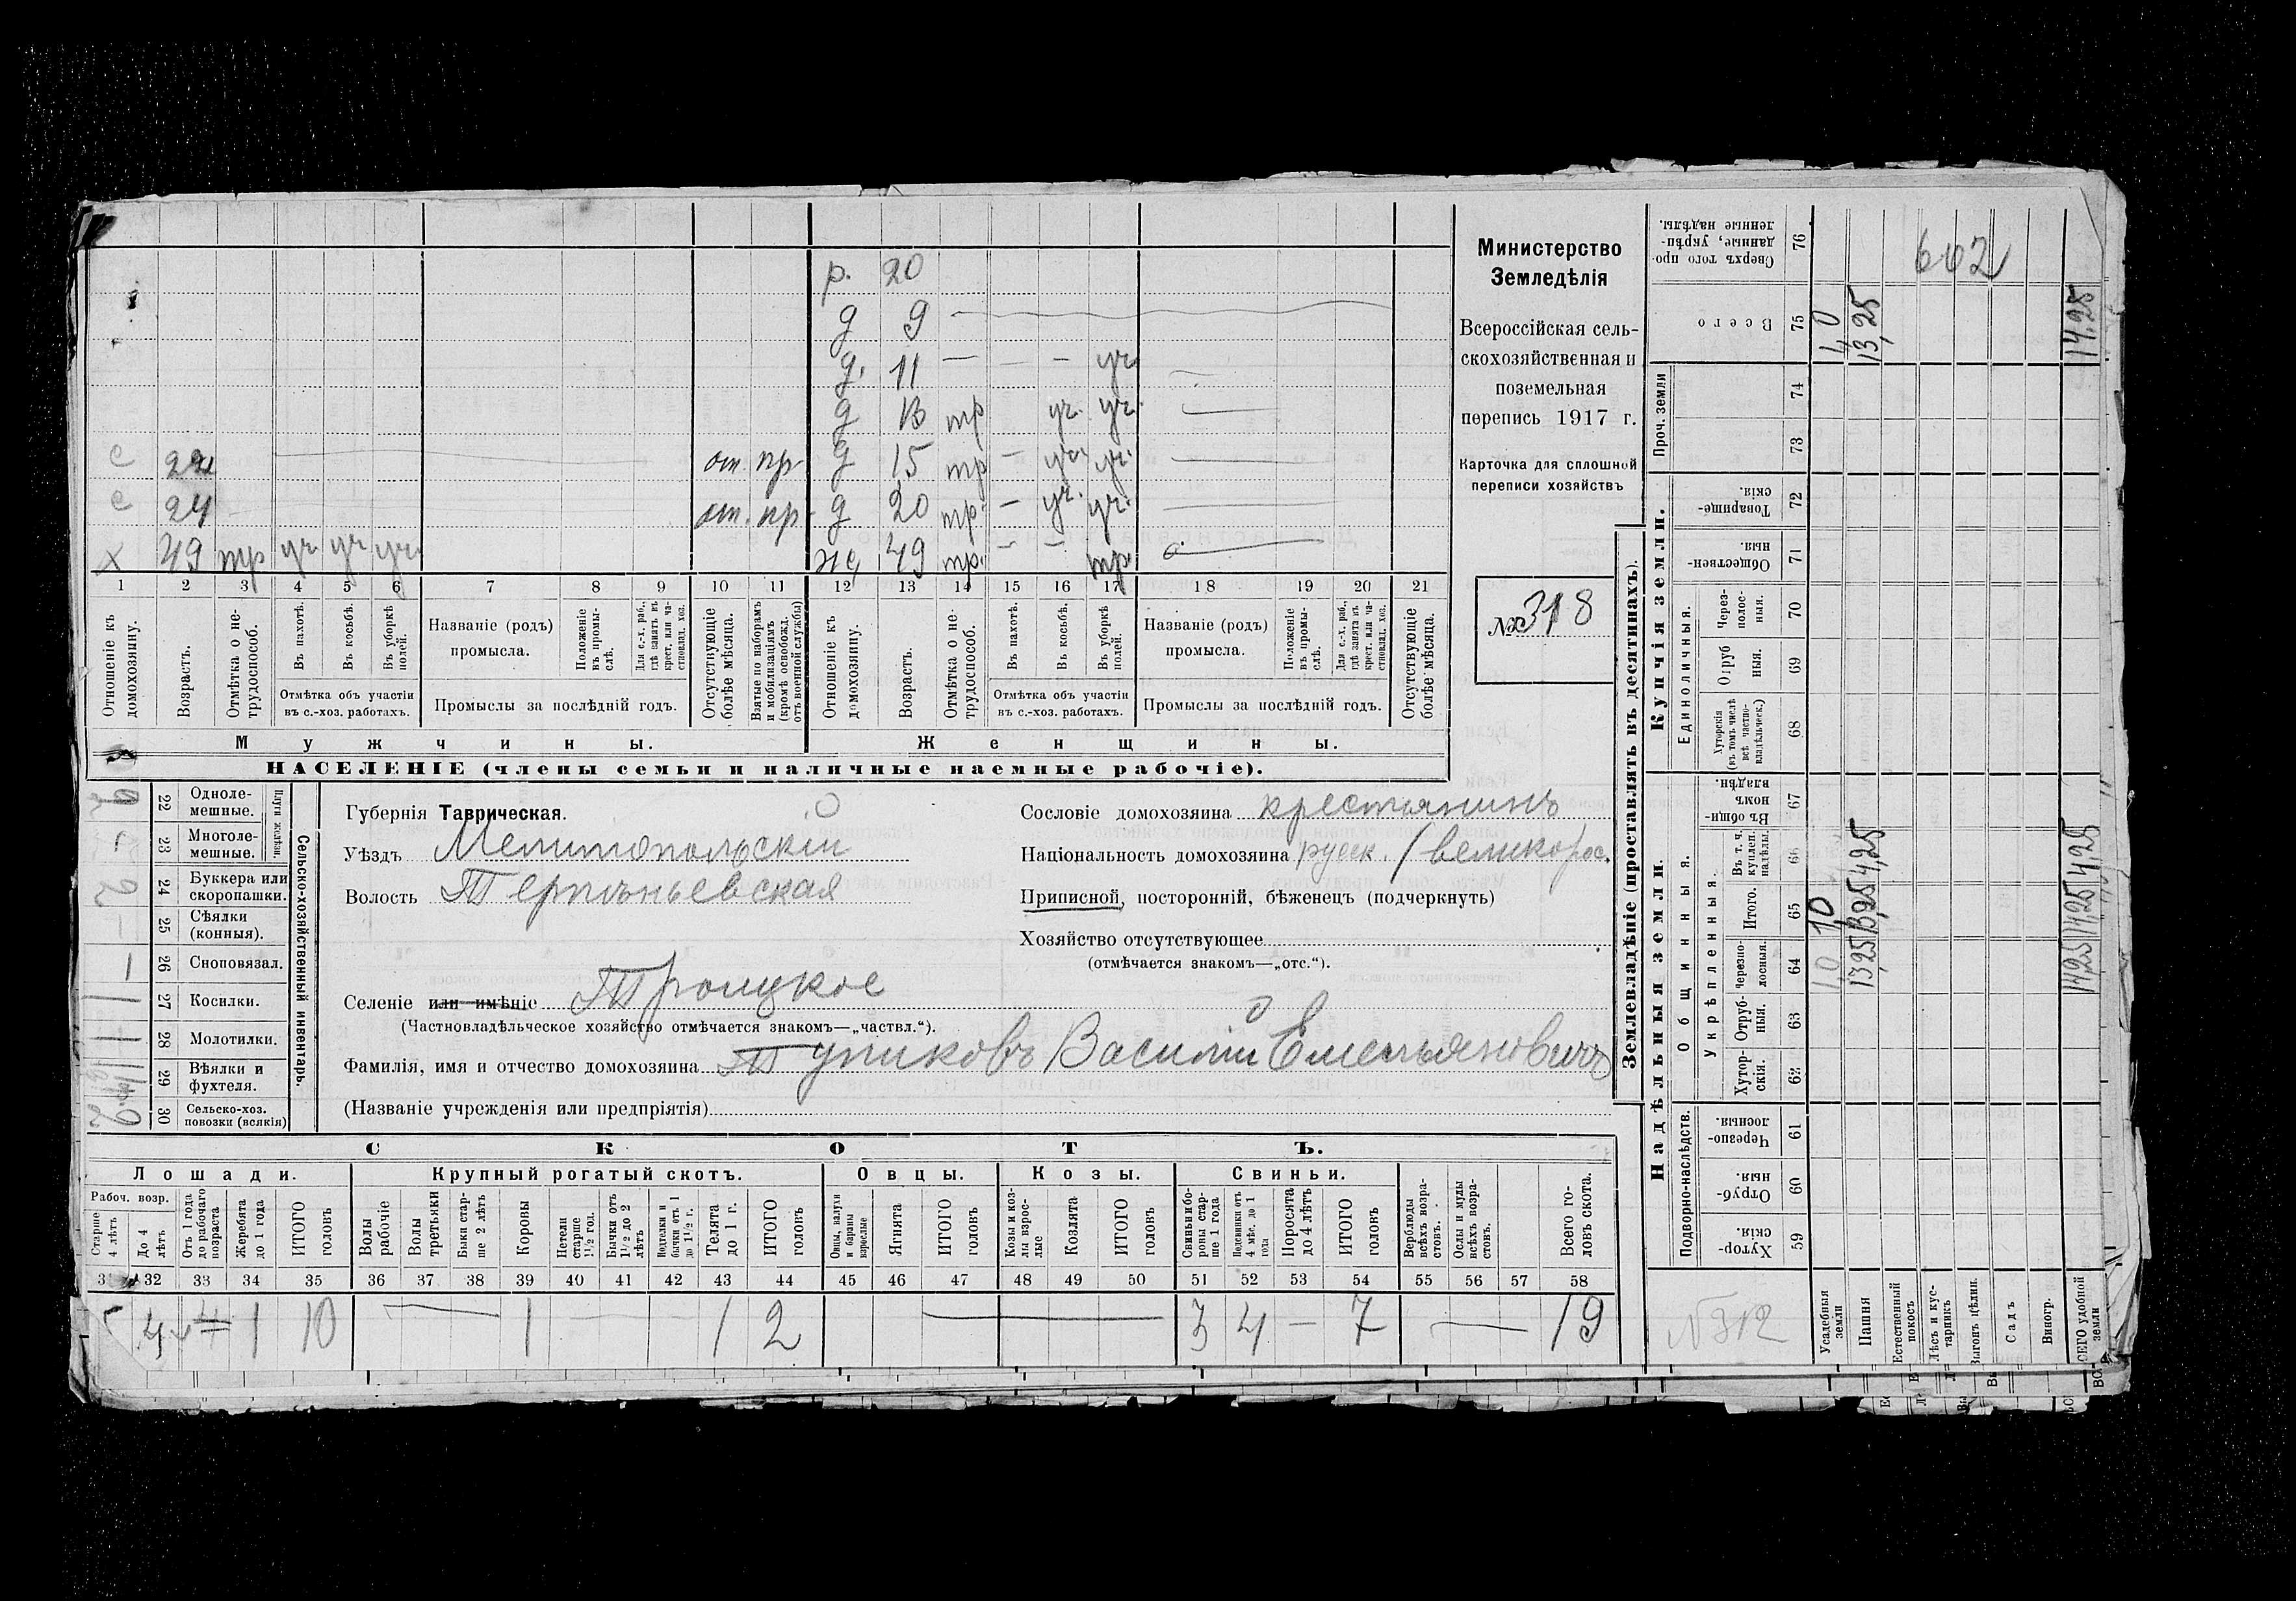 р. 20
д 9 —
д. 11 — — — уч.
д 13 тр уч. уч.
с 22 от. пр д 15 тр — уч. уч.
с 24 от. пр. д 20 тр. — уч. уч.
х 49 тр уч уч уч. ж 49 тр. — — тр.
1 2 3 4 5 6 7 8 9 10 11 12 13 14 15 16 17 18 19 20 21
Отношеніе къ домохозяину.
Возрастъ.
Отмѣтка о не-трудоспособ.
Въ пахотѣ.
Въ косьбѣ.
Въ уборкѣ полей.
Отмѣтка объ участіи въ с.-хоз. работахъ.
Названіе (родъ) промысла.
Положеніе въ промы-слѣ.
Для с.-х. раб., гдѣ занятъ въ крест. или ча-стновлад. хоз.
Промыслы за послѣдній годъ.
Отсутствующіе болѣе мѣсяца.
Взятые по наборамъ и мобилизаціямъ (кромѣ освобожд. отъ военной службы)
Отношеніе къ домохозяину.
Возрастъ.
Отмѣтка о не-трудоспособ.
Въ пахотѣ.
Въ косьбѣ.
Въ уборкѣ полей.
Отмѣтка объ участіи въ с.-хоз. работахъ.
Названіе (родъ) промысла.
Положеніе въ промы-слѣ.
Для с.-х. раб., гдѣ занята въ крест. или ча-стновлад. хоз.
Промыслы за послѣдній годъ.
Отсутствующіе болѣе мѣсяца.
Мужчины.
Женщины.
НАСЕЛЕНІЕ (члены семьи и наличные наемные рабочіе).
Министерство
Земледѣлія
Всероссійская сель-
скохозяйственная и
поземельная
перепись 1917 г.
Карточка для сплошной
переписи хозяйствъ
№ 318
Плуги желѣзн.
22 Одноле-мешные.
23 Многоле-мешные. —
24 Буккера или скоропашки. 2
25 Сѣялки (конныя). —
26 Сноповязал. —
27 Косилки. 1
28 Молотилки.
29 Вѣялки и фухтеля.
30 Сельско-хоз. повозки (всякія) 2
Сельско-хозяйственный инвентарь.
Губернія Таврическая.
Уѣздъ Мелитопольскій
Волость Терпѣньевская
Селеніе или имѣніе Троицкое
(Частновладѣльческое хозяйство отмѣчается знакомъ—„частвл.“).
Фамилія, имя и отчество домохозяина Тупиковъ Василій Емельяновичъ
(Названіе учрежденія или предпріятія)
Сословіе домохозяина крестьянинъ
Національность домохозяина русск. (великорос.
Приписной, посторонній, бѣженецъ (подчеркнуть)
Хозяйство отсутствующее
(отмѣчается знакомъ—„отс.“).
СКОТЪ.
Лошади. Крупный рогатый скотъ. Овцы. Козы. Свиньи.
Рабоч. возр.
Старше 4 лѣтъ
До 4 лѣтъ
Отъ 1 года до рабочаго возраста
Жеребята до 1 года
ИТОГО головъ
Волы рабочіе
Волы третьяки
Быки стар-ше 2 лѣтъ
Коровы
Нетели старше 1½ год.
Бычки отъ 1½ до 2 лѣтъ
Подтелки и бычки отъ 1 до 1½ г.
Телята до 1 г.
ИТОГО головъ
Овцы, валухи и бараны взрослые
Ягнята
ИТОГО головъ
Козы и коз-лы взрос-лые
Козлята
ИТОГО головъ
Свиньи и бо-ровы стар-ше 1 года
Подсвинки отъ 4 мѣс. до 1 года
Поросята до 4 лѣтъ
ИТОГО головъ
Верблюды всѣхъ возра-стовъ.
Ослы и мулы всѣхъ возра-стовъ.
Всего го-ловъ скота.
31 32 33 34 35 36 37 38 39 40 41 42 43 44 45 46 47 48 49 50 51 52 53 54 55 56 57 58
4 1 10 — 1 — 1 2 — 3 4 — 7 — 19
Землевладѣніе (проставлять въ десятинахъ).
Надѣльныя земли.
Купчія земли.
Подворно-наслѣдств.
Общинныя.
Укрѣпленныя.
Единоличныя.
Проч. земли
59 Хутор-скія.
60 Отруб-ныя.
61 Черезпо-лосныя.
62 Хутор-скія.
63 Отруб-ныя.
64 черезпо-лосныя.
65 Итого.
66 Въ т. ч. куплен. надѣлы.
67 Въ общин-номъ владѣн.
68 Хуторскія (въ томъ числѣ всѣ частно-владѣльческ.)
69 Отруб ныя.
70 Через-полос-ныя.
71 Обществен-ныя.
72 Товарище-скія.
73
74
75 Всего
76 Сверхъ того про-данные, укрѣп-ленные надѣлы.
602
Усадебныя земли 1,0 1,0 1,0
Пашня 13,25 13,25 4,25 13,25
Естественный покосъ
Лѣсъ и кус-тарникъ
Выгонъ цѣлин.
Садъ
Виногр.
ВСЕГО удобной земли 14,25 14,25 4,25 14,25
№ 312